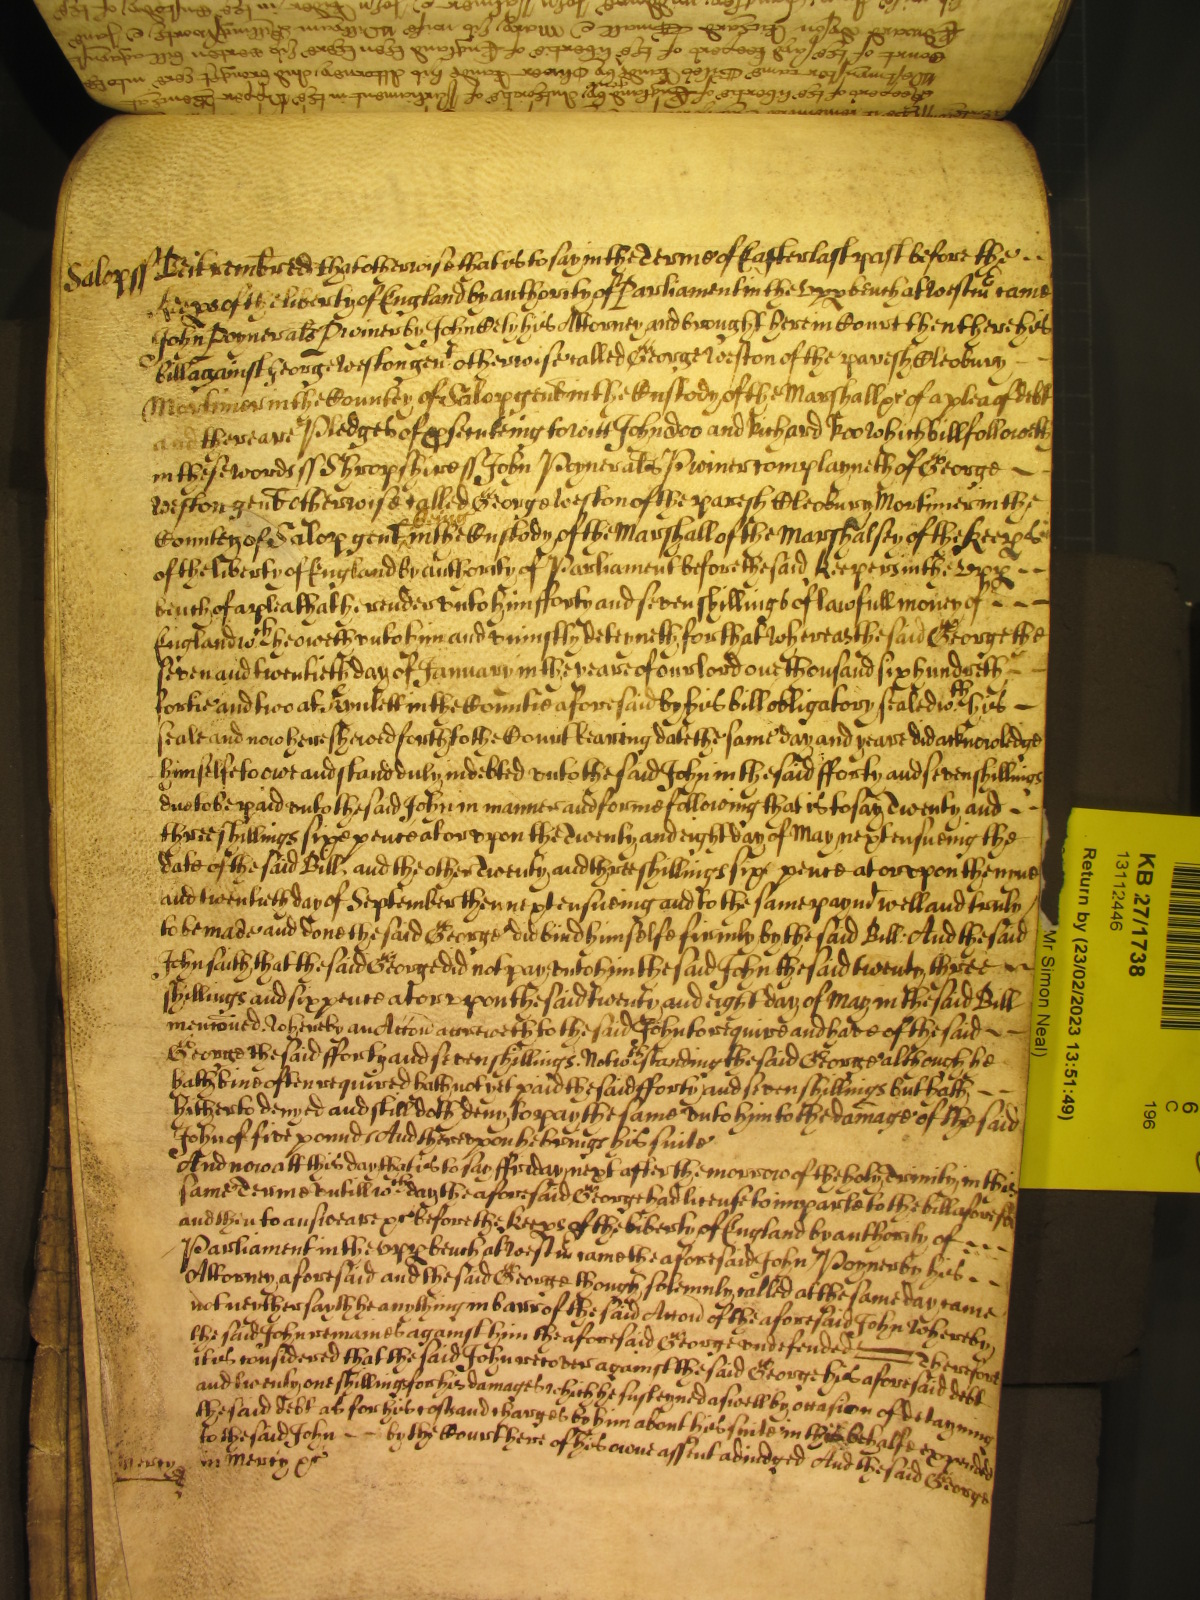 Salop ss Be it remembred that otherwise that is to say in the Terme of Easter last past before the
Keeps of the liberty of England by authority of Parliament in the upp bench at Westm came
John Poyner als Pwiner by John Cely his Attorney and brought here in Court then there his
bill against George Weston gent otherwise called George Weston of the parish Cleobury
Mortimer in the Countey of Salop gent in the Custody of the Marshall &c of a plea of debt
and there are Pledges of psecuteing to witt John doo and Richard Roo which bill followeth
in these words ss Shropshire ss John Poyner als Pwiner complayneth of George
Weston gent otherwise called George Weston of the paresh Cleobury Mortimer in the
Countey of Salop gent being in the Custody of the Marshall of the Marshalsey of the Keeps
of the liberty of England by authority of Parliament before the said Keepers in the upp
bench of a plea that he render unto him fforty and seven shillings of lawfull money of
England wch he oweth unto him and uniustly deteyneth for that whereas the said George the
seven and twentieth day of January in the yeare of our lord one thousand six hundreth
fortie and two at in the Countie aforesaid by his bill obligatory sealed wth his
seale and now here shewed forth to the Court beareing date the same day and yeare did acknowledge
himselfe to owe and stand duly indebted unto the said John in the said fforty and seven shillings
due to be paid unto the said John in manner and forme following that is to say Twenty and
three shillings sixe pence at or upon the Twenty and eight day of May next ensueing the
date of the said Bill, and the other Twenty and three shillings six pence at or upon the nine
and twentieth day of September then next ensueing and to the same paymt well and truly
to be made and done the said George did bind himselfe firmly by the said Bill. And the said
John saith, that the said George did not pay unto him the said John the said twenty three
shillings and six pence at or upon the said twenty and eight day of May in the said Bill
mencioned. Whereby an Accon accreweth to the said John to require and have of the said
George the said fforty and seven shillings. Notwthstanding the said George although he
hath bine often required hath not yet paid the said fforty and seven shillings but hath
hitherto denyed and still doth deny to pay the same unto him to the damage of the said
John of five pounds And thereupon he brings his suite
And now att this day that is to say ffriday next after the morrow of the holy Trinity in this
same Terme untill wch day the aforesaid George had license to imparle to the bill aforesd
and then to answeare &c before the Keeps of the liberty of England by authority of
Parliament in the upp bench at Westm came the aforesaid John Poyner by his
Attorney aforesaid and the said George though solemnly called at the same day came
not neyther sayth he any thing in barr of the said Accon of the aforesaid John Whereby
the said John remaines against him the aforesaid George undefended Therefore
it is considered that the said John recover against the said George his aforesaid debt
and twenty one shillings for his damages which he susteyned aswell by occasion of detayning
the said debt as for his costs and charges by him about his suite in this behalfe expended
to the said John by the Court here of his owne assent adiudged And the said George
Mercy in Mercy &c
KB 27/1738
13112446
Return by (23/02/2023 13:51:49)
Mr Simon Neal)
6
C
196